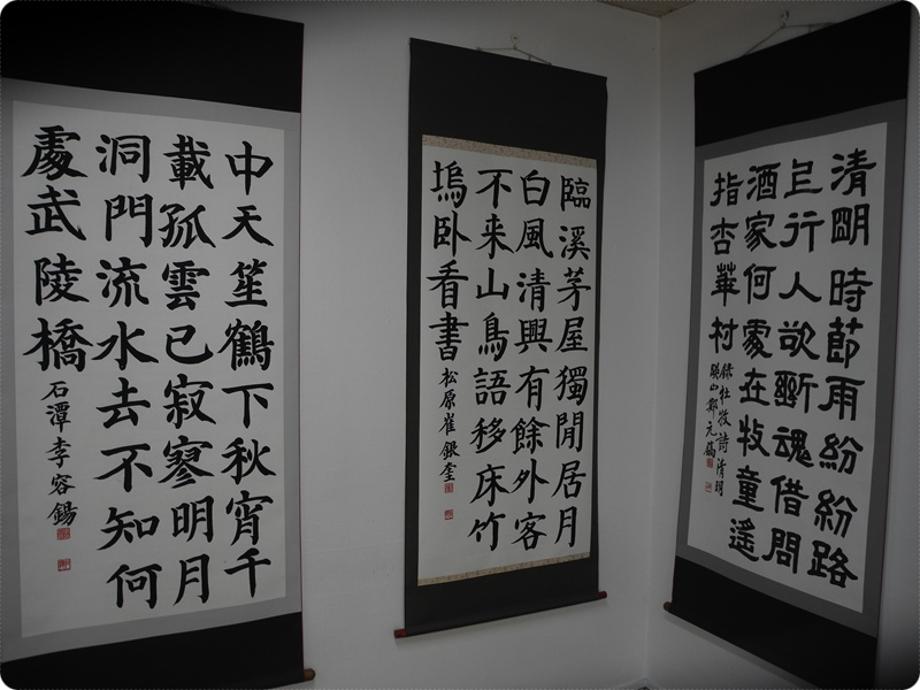 清明時節雨紛紛路
上行人欲斷魂借問
酒家何處在牧童遙
指杏華村
錄杜牧詩清明
暎山鄭元鎬
臨溪茅屋獨閒居月
白風清興有餘外客
不来山鳥語移床竹
塢臥看書
松原崔銀奎
中天笙鶴下秋宵千
載孤雲已寂寥明月
洞門流水去不知何
處武陵橋
石潭李容錫